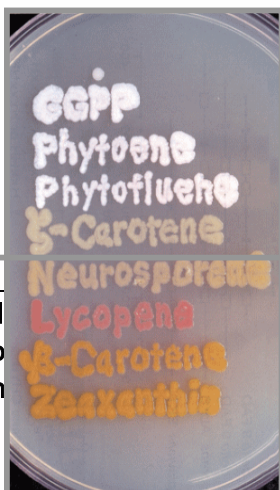 GGPP
Phytoene
Phytofluene
ζ-Carotene
Neurosporene
Lycopene
β-Carotene
Zeaxanthin